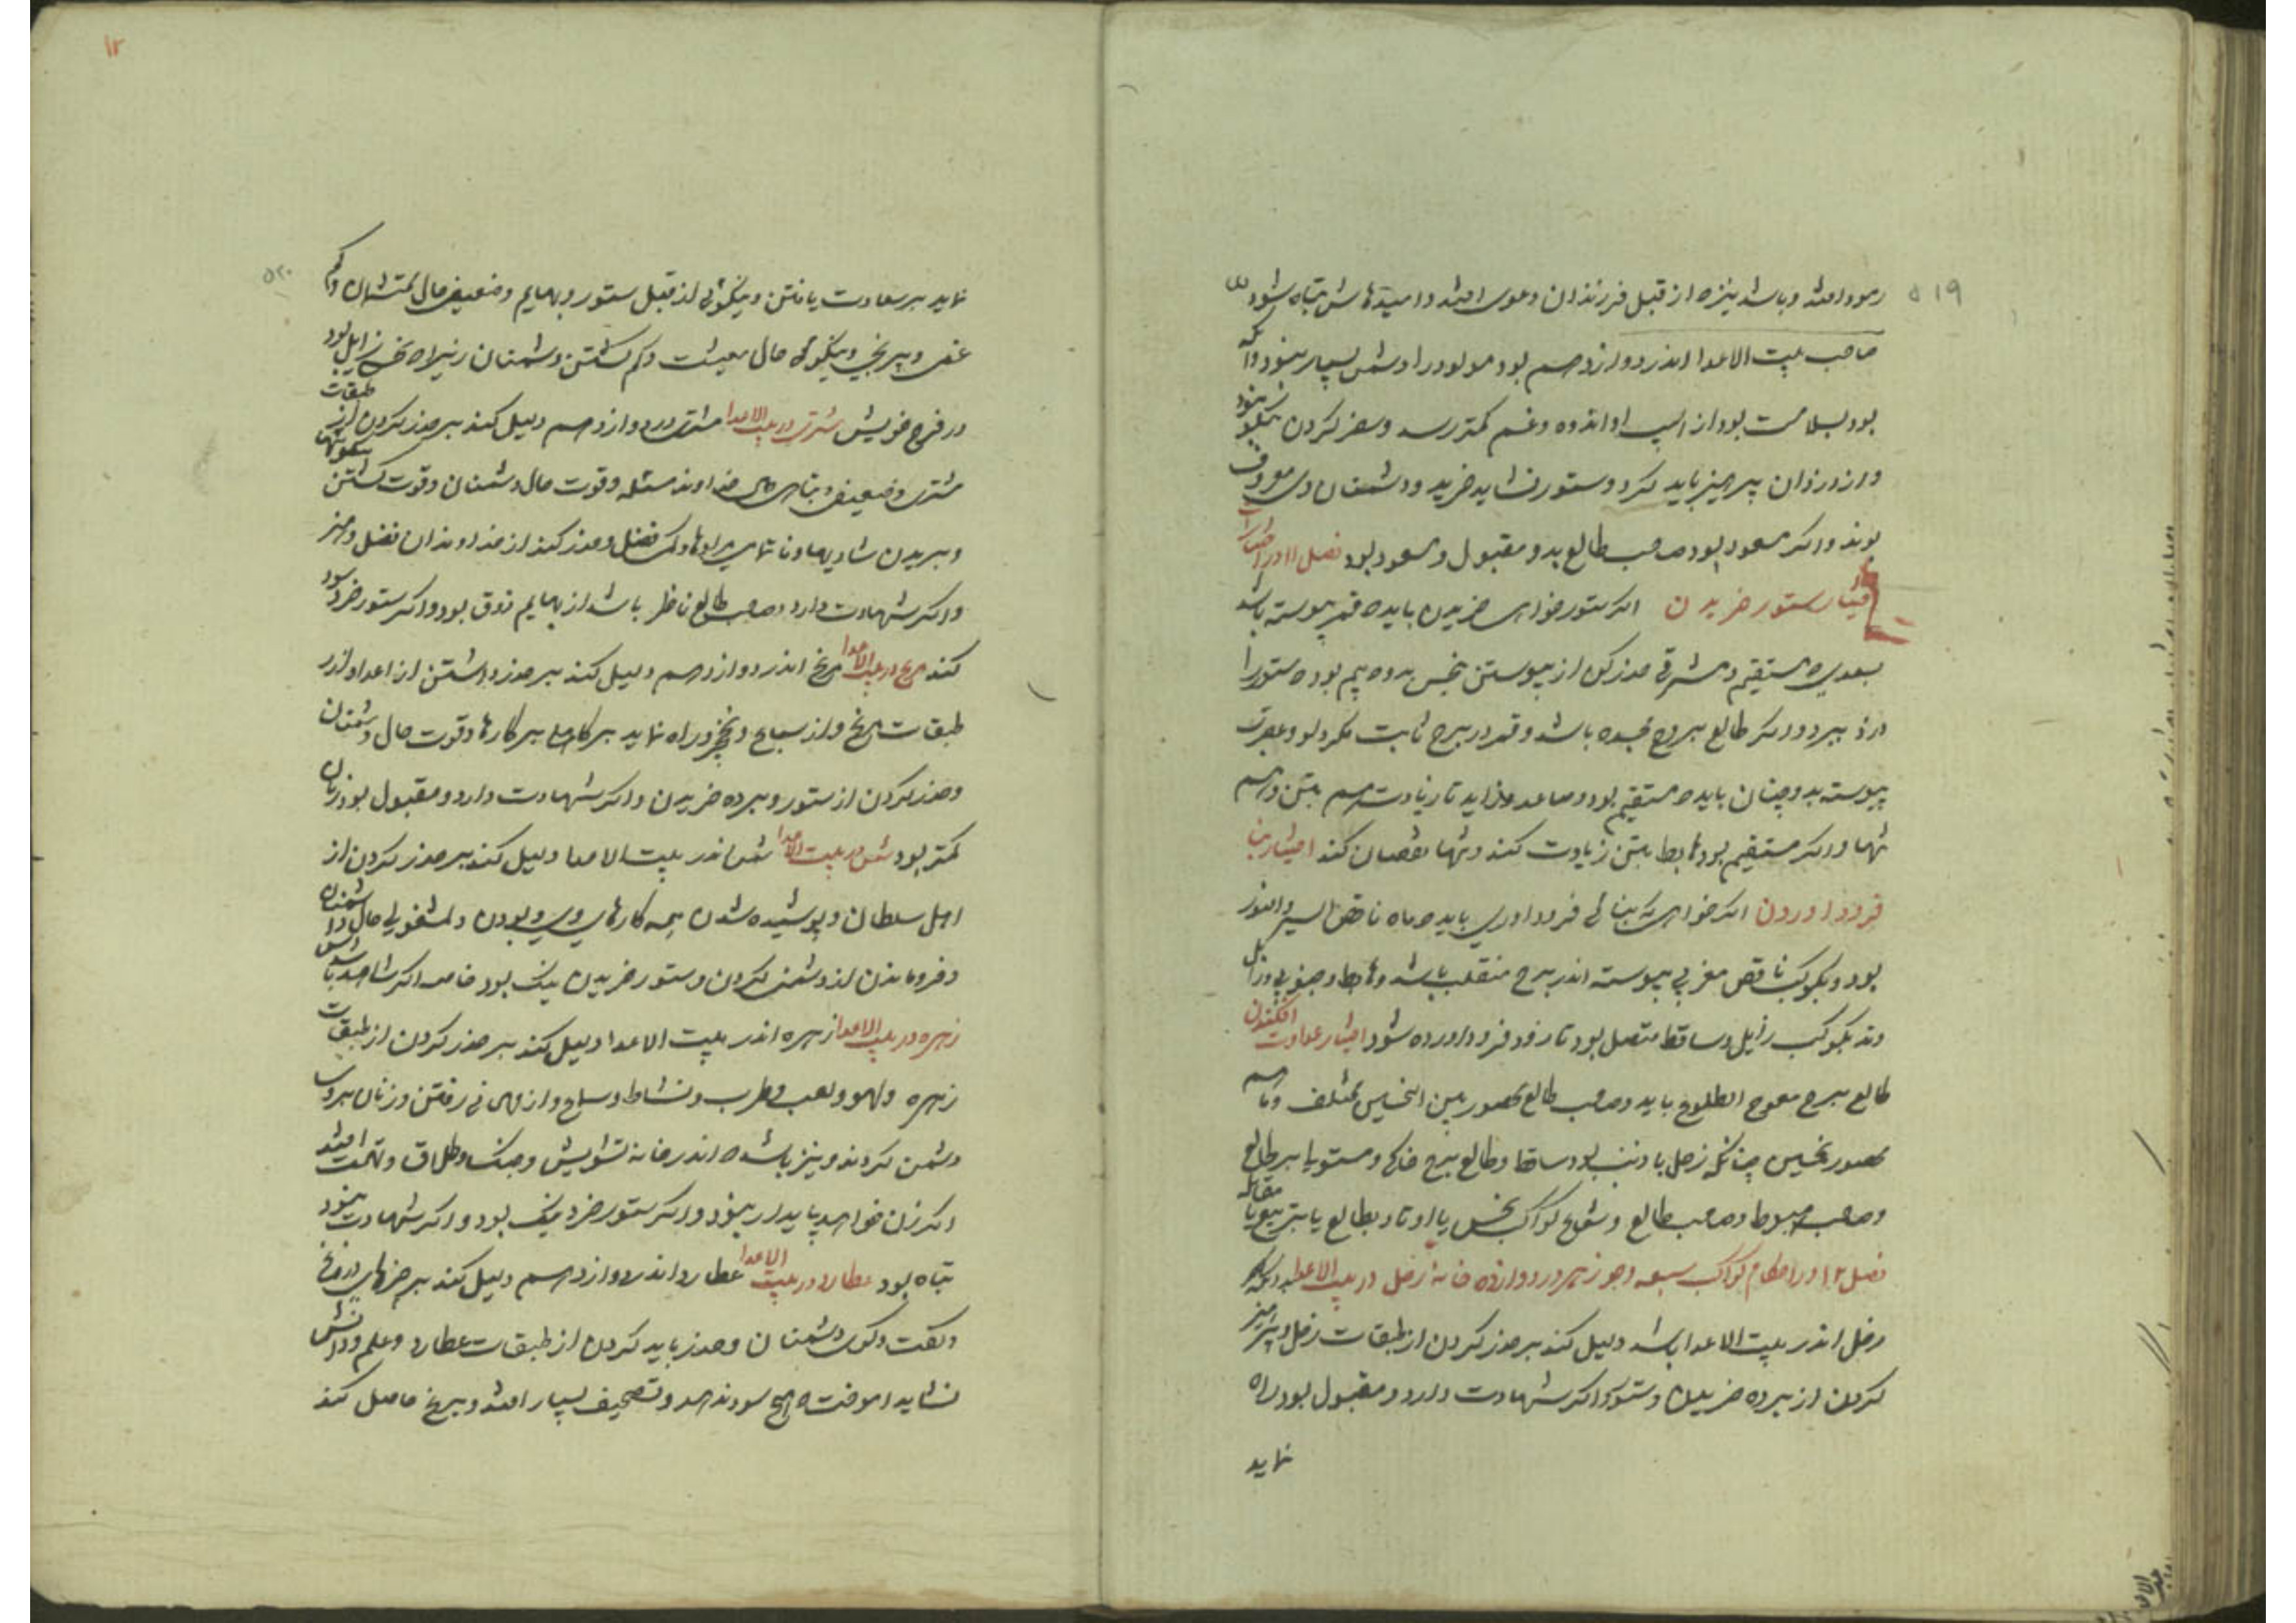 ۵۱۹
رمود افتد و باشد نیزه از قبل فرزندان دعوی افتد و امیدهاش تباه شود
صاحب بیت الاعدا اندر دوازدهم بود مولود را دشمن بسیار بود و اگر
بود بسلامت بود از اسپ او اندوه و غم کمتر رسد و سفر کردن
و از دزدان پرهیز باید کرد و ستور نشاید خرید و دشمنان وی معروف
بوند و اگر مسعود بود صاحب طالع بدو مقبول و مسعود بود فصل ۱۱ در اختیارات
اختیار ستور خریدن اگر ستور خواهی خریدن باید ه قمر پیوسته باشد
بسعدی ه مستقیم و مشرقی حذر کن از پیوستن بنحس بدو ه بیم بود ه ستور را
دزد ببرد و دیگر طالع بروج مجسده باشد و قمر در برج ثابت مگر دلو و عقرب
پیوسته بدو چنان باید ه مستقیم بود و صاعد و زاید تا زیادت هم بتن و هم
بها و اگر مستقیم بود هابط بتن زیادت کند و بها نقصان کند اختیار بنا
فرود آوردن اگر خواهی که بنائی فرود آوری باید ه ماه ناقص السیر و النور
بود و بکوکب ناقص مغربی پیوسته اندر برج منقلب باشد و هابط و جنوبی و زایل
وتد بکوکب زایل و ساقط متصل بود تا زود فرود آورده شود اختیار عداوت افکندن
طالع برج معوج الطلوع باید و صاحب طالع محصور بین النحسین بمثلث و ماه هم
محصور نحسین چنانکه زحل با ذنب بود ساقط و طالع برج خاکی و مستولی بر طالع
و صاحب هبوط و صاحب طالع و شعاع کواکب نحس یا اوتاد بطالع یا بتربیع یا مقابله
فصل ۱۲ در احکام کواکب سبعه و جوزهر در دوازده خانه زحل در بیت الاعدا
زحل اندر بیت الاعدا باشد دلیل کند بر حذر کردن از طبقات زحل و پرهیز
کردن از برده خریدن و ستور و اگر شهادت دارد و مقبول بود راه
نماید
۱۲
۵۲۰
نماید بر سعادت یافتن و نیکوئی از قبل ستور و بهایم و ضعیفی حال
غمی و بیرنجی و نیکوئی حال معیشت و کم گشتن دشمنان زیراه نحسی زایل بود
در فرح خویش مشتری در بیت الاعدا مشتری در دوازدهم دلیل کند بر حذر کردن از طبقات
مشتری و ضعیفی و تباهی خداوند مسئله و قوت حال دشمنان و قوت گشتن
و بریدن شادیها و ناتمامی مرادها و کم فضل و حذر کند از خداوندان فضل و هنر
و اگر شهادت دارد و صاحب طالع ناظر باشد از بهایم ذوق بود و اگر ستور خرد سود
کند مریخ در بیت الاعدا مریخ اندر دوازدهم دلیل کند بر حذر داشتن از اعدا و از
طبقات مریخ و از سباع و نخچیر و راه نماید بر کاهلی بر کارها و قوت حال دشمنان
و حذر کردن از ستور و برده خریدن و اگر شهادت دارد و مقبول بود زیان
کمتر بود شمس در بیت الاعدا شمس اندر بیت الاعدا دلیل کند بر حذر کردن از
اهل سلطان و پوشیده شدن همه کارهای وی و بودن دلمشغولی حال دشمنان
و فروماندن از دشمن کردن و ستور خریدن نیک بود خاصه اگر شاهد باشد
زهره در بیت الاعدا زهره اندر بیت الاعدا دلیل کند بر حذر کردن از طبقات
زهره و لهو و لعب و طرب و نشاط و سماع و از مهمانی رفتن و زنان بر وی
دشمن گردند و نیز باشد ه اندر خانه تشویش و جنگ و طلاق و تهمت افتد
اگر زن خواهد پایدار نبود و اگر ستور خرد نیک بود و اگر شهادت نبود
تباه بود عطارد در بیت الاعدا عطارد اندر دوازدهم دلیل کند بر خبرهای دروغ
و گفت و گوی دشمنان و حذر باید کردن از طبقات عطارد و علم و دانش
نشاید آموخت ه هیچ سود ندهد و تصحیف بسیار افتد و برنج حاصل کند